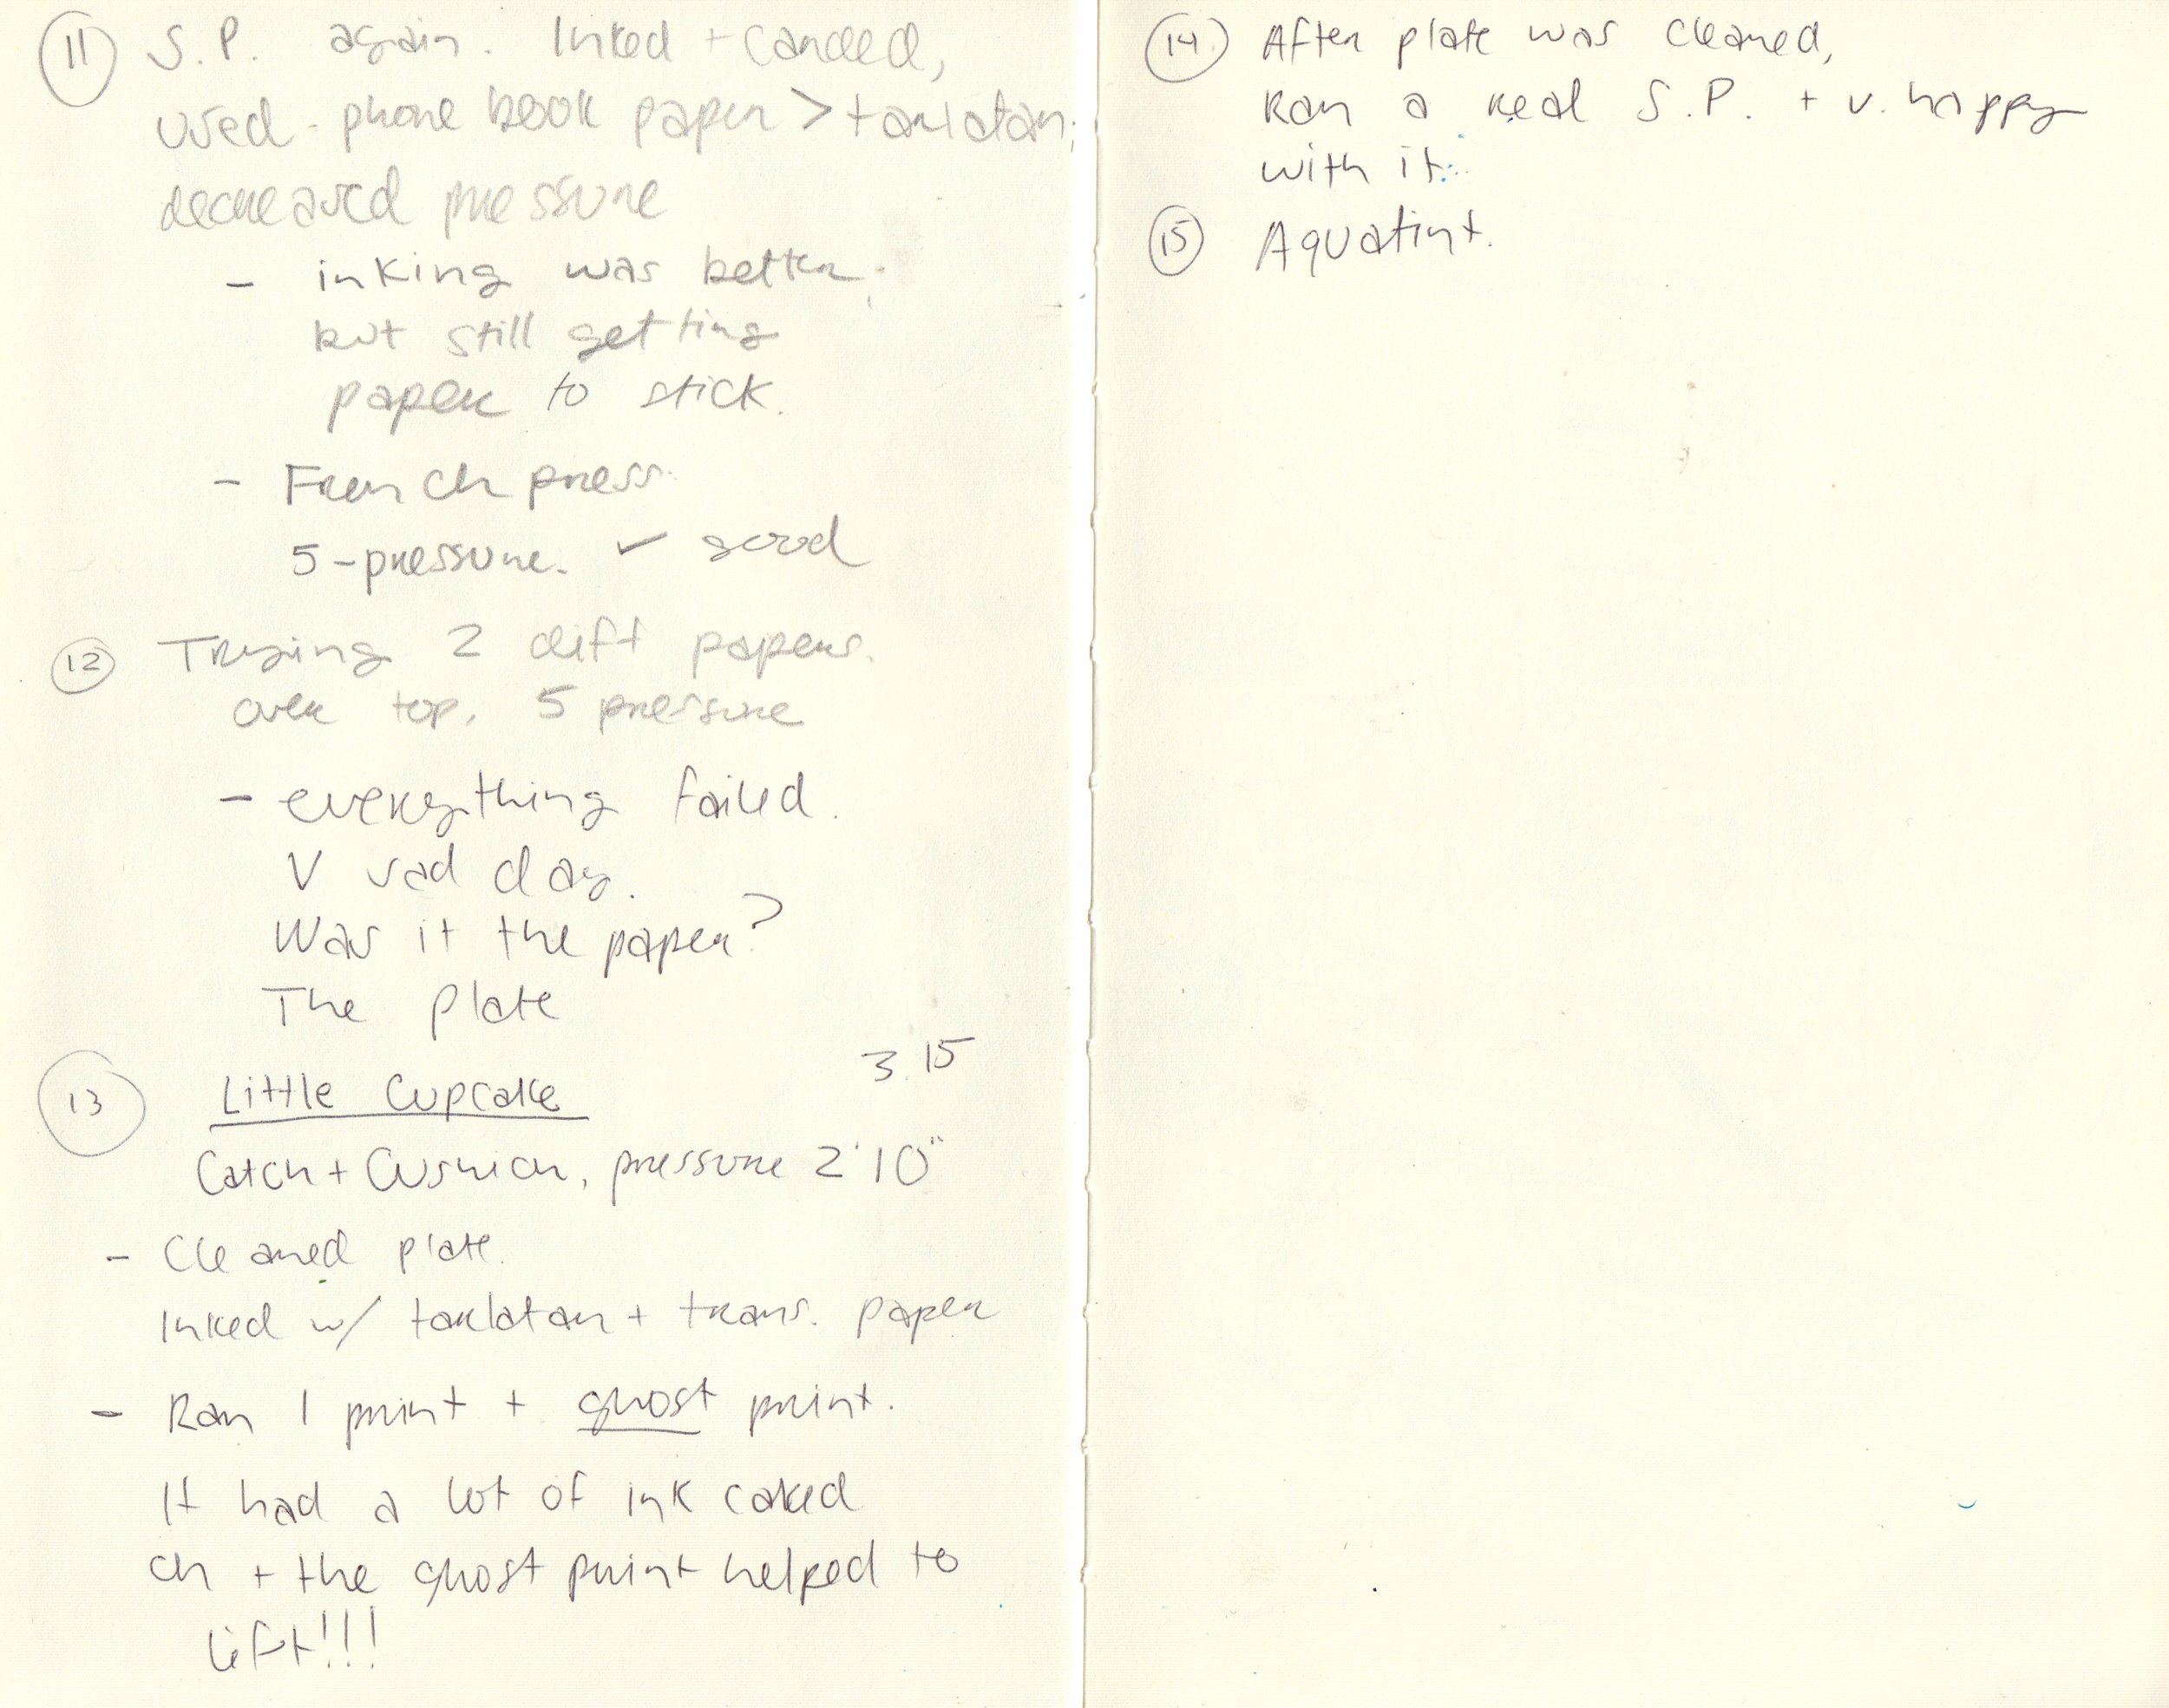 11 S.P. again. Inked + carded,
used - phone book paper > tarlatan;
decreased pressure
- inking was better;
but still getting
paper to stick.
- French press.
5-pressure. ✓ good
12 Trying 2 diff papers.
over top. 5 pressure
- everything failed.
V sad day.
Was it the paper?
The plate
3.15
13 Little Cupcake
Catch + Cushion, pressure 2'10"
- Cleaned plate.
Inked w/ tarlatan + trans. paper
- Ran 1 print + ghost print.
It had a lot of ink caked
on + the ghost print helped to
lift!!!
14 After plate was cleaned,
Ran a real S.P. + v. happy
with it.
15 Aquatint.